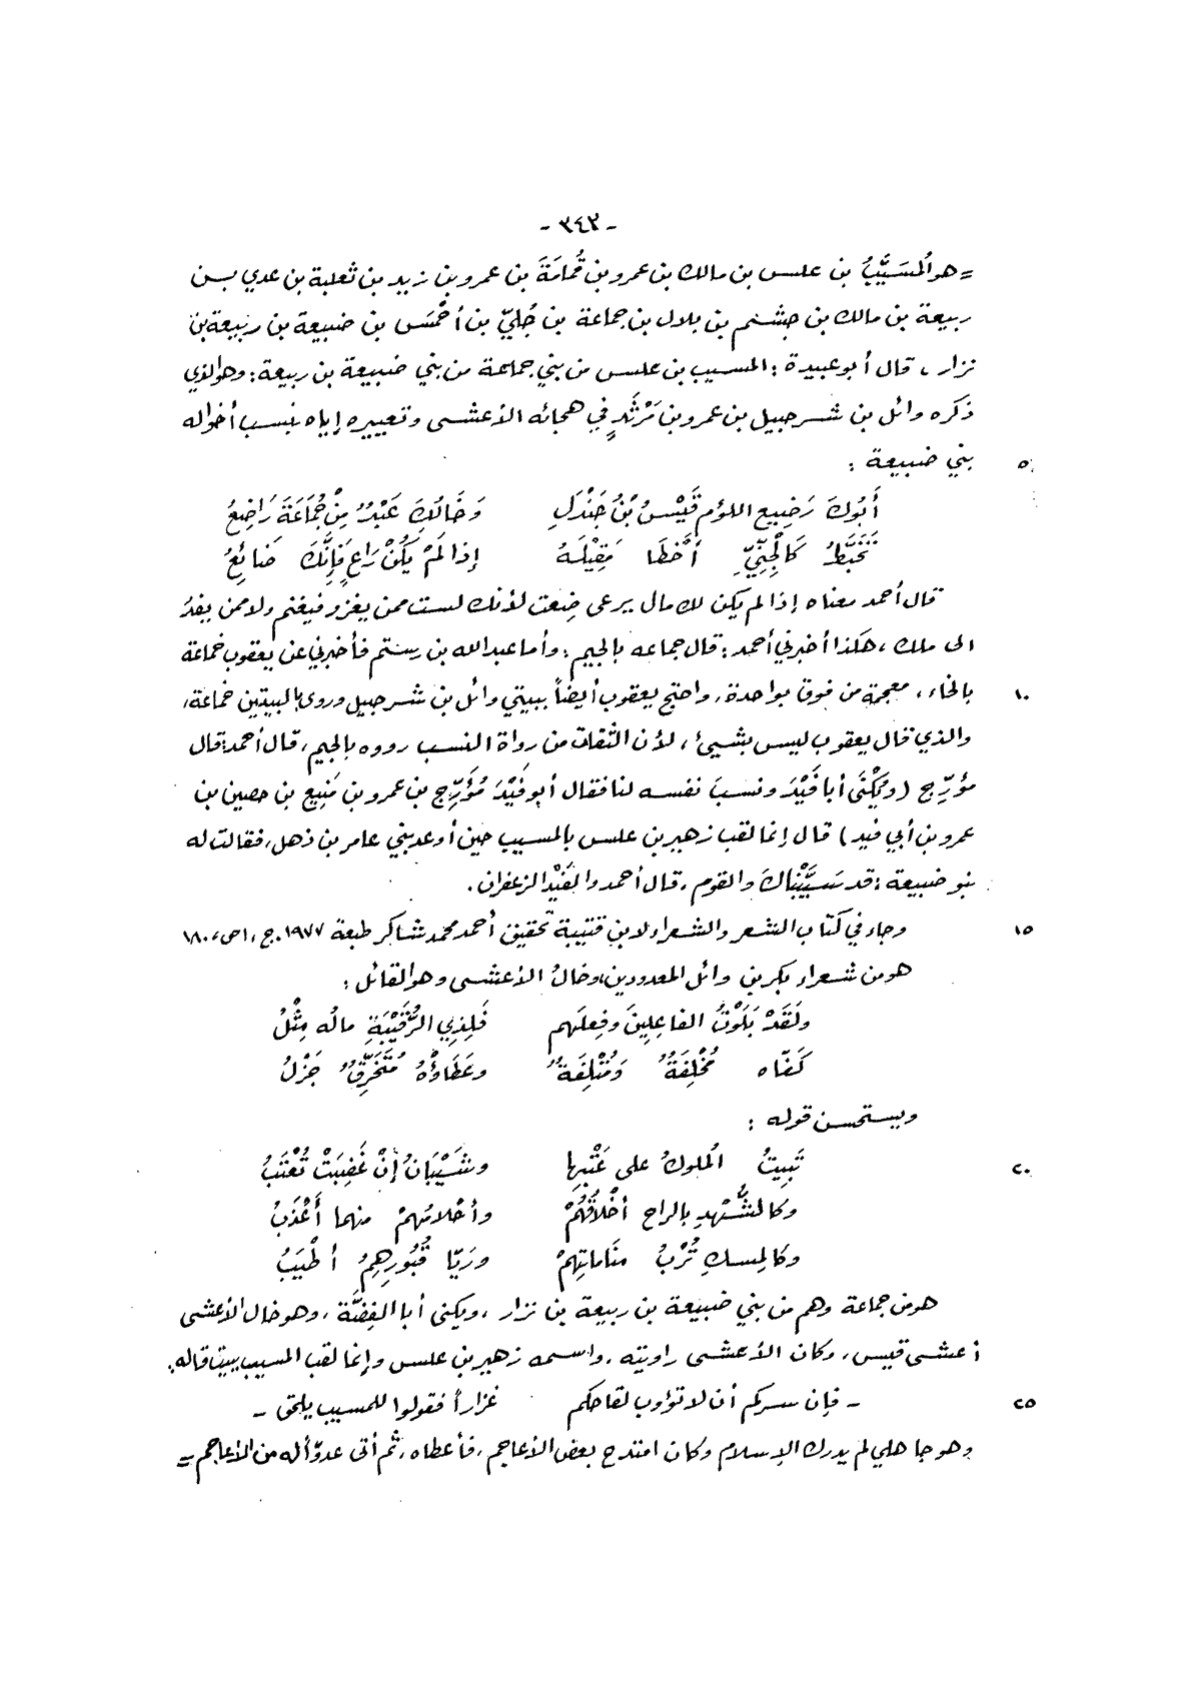 - ٣٤٣ -
= هو المُسَيَّبُ بن علس بن مالك بن عمرو بن قُمامَةَ بن عمرو بن زيد بن ثعلبة بن عدي بـن
ربيعة بن مالك بن جشنم بن بلال بن جماعة بن جُليّ بن أحْمَس بن ضبيعة بن ربيعة بن
نزار ، قال أبو عبيدة : المسيب بن علس من بني جماعة من بني ضبيعة بن ربيعة : وهو الذي
ذكره وائل بن شرحبيل بن عمرو بن مَرْثَدٍ في هجائه الأعشى وتعييره إياه بنسب أخواله
٥ بني ضبيعة :
أَبُوكَ رَضِيع اللؤم قَيْسُ بْنُ جَنْدَلٍ وَخَالُكَ عَبْدٌ مِنْ جُمَاعَةَ رَاضِعُ
تَخَبَّطُ كَالْجِنِّيِّ أَخْطَا مَقِيْلَهُ إذا لَمْ يَكُنْ رَاعٍ فَإِنَّكَ ضَائِعُ
قال أحمد معناه إذا لم يكن لك مال يرعى ضِعت لأنك لست ممن يغزو فيغنم ولا ممن يفدُ
الى ملك ، هكذا أخبرني أحمد : قال جماعه بالجيم : وأما عبد الله بن رستم فأخبرني عن يعقوب خماعة
١٠ بالخاء ، معجمة من فوق بواحدة ، واحتج يعقوب أيضاً ببيتي وائل بن شرحبيل وروى بالبيتين خماعة ،
والذي قال يعقوب ليس بشيئ ، لأن الثقات من رواة النسب رووه بالجيم ، قال أحمد : قال
مؤرّج ( ويُكْنَى أبا فَيْدَ ونسبَ نفسه لنا فقال أبو فَيْدَ مُؤَرِّج بن عمرو بن مَنِيع بن حصين بن
عمرو بن أبي فيد ) قال إنما لقب زهير بن علس بالمسيب حين أوعد بني عامر بن ذهل ، فقالت له
بنو ضبيعة : قد سَيَّبْنَاكَ والقوم ، قال أحمد والفَيْدُ الزعفران .
١٥ وجاء في كتاب الشعر والشعراء لابن قتيبة تحقيق أحمد محمد شاكر طبعة ١٩٧٧ . ج ، ١ ص ، ١٨٠
هو من شعراء بكر بن وائل المعدودين ، وخالُ الأعشى وهو القائل :
ولَقَدْ بَلَوْتُ الفاعِلينَ وفِعلَهم فَلِذِي الرُّقَيْبَةِ مالُه مِثْلُ
كَفّاه مُخْلِفَةٌ وَمُتْلِفَةٌ وعَطَاؤُهُ مُتَخَرِّقٌ جَزْلُ
ويستحسن قوله :
٢٠ تَبِيتُ الْملوكُ على عَتْبِها وشَيْبَانُ إنْ غَضِبَتْ تُعْتَبُ
وكالشُّهْدِ بالراح أخْلاقُهُمْ وأحْلامُهمْ منهما أَعْذَبُ
وكالمِسكِ تُرْبُ مَقاماتِهِمْ ورَيّا قُبُورِهِمُ أطْيَبُ
هو من جماعة وهم من بني ضبيعة بن ربيعة بن نزار ، ويكنى أبا الفِضَّة ، وهو خال الأعشى
أعشى قيس ، وكان الأعشى راويته ، واسمه زهير بن علس وإنما لقب المسيب ببيت قاله .
٢٥ - فإن سركم أن لا تؤوب لقاحكم غزاراً فقولوا للمسيب يلحق -
وهو جاهلي لم يدرك الإسلام وكان امتدح بعض الأعاجم ، فأعطاه ، ثم أتى عدوّاً له من الأعاجم =